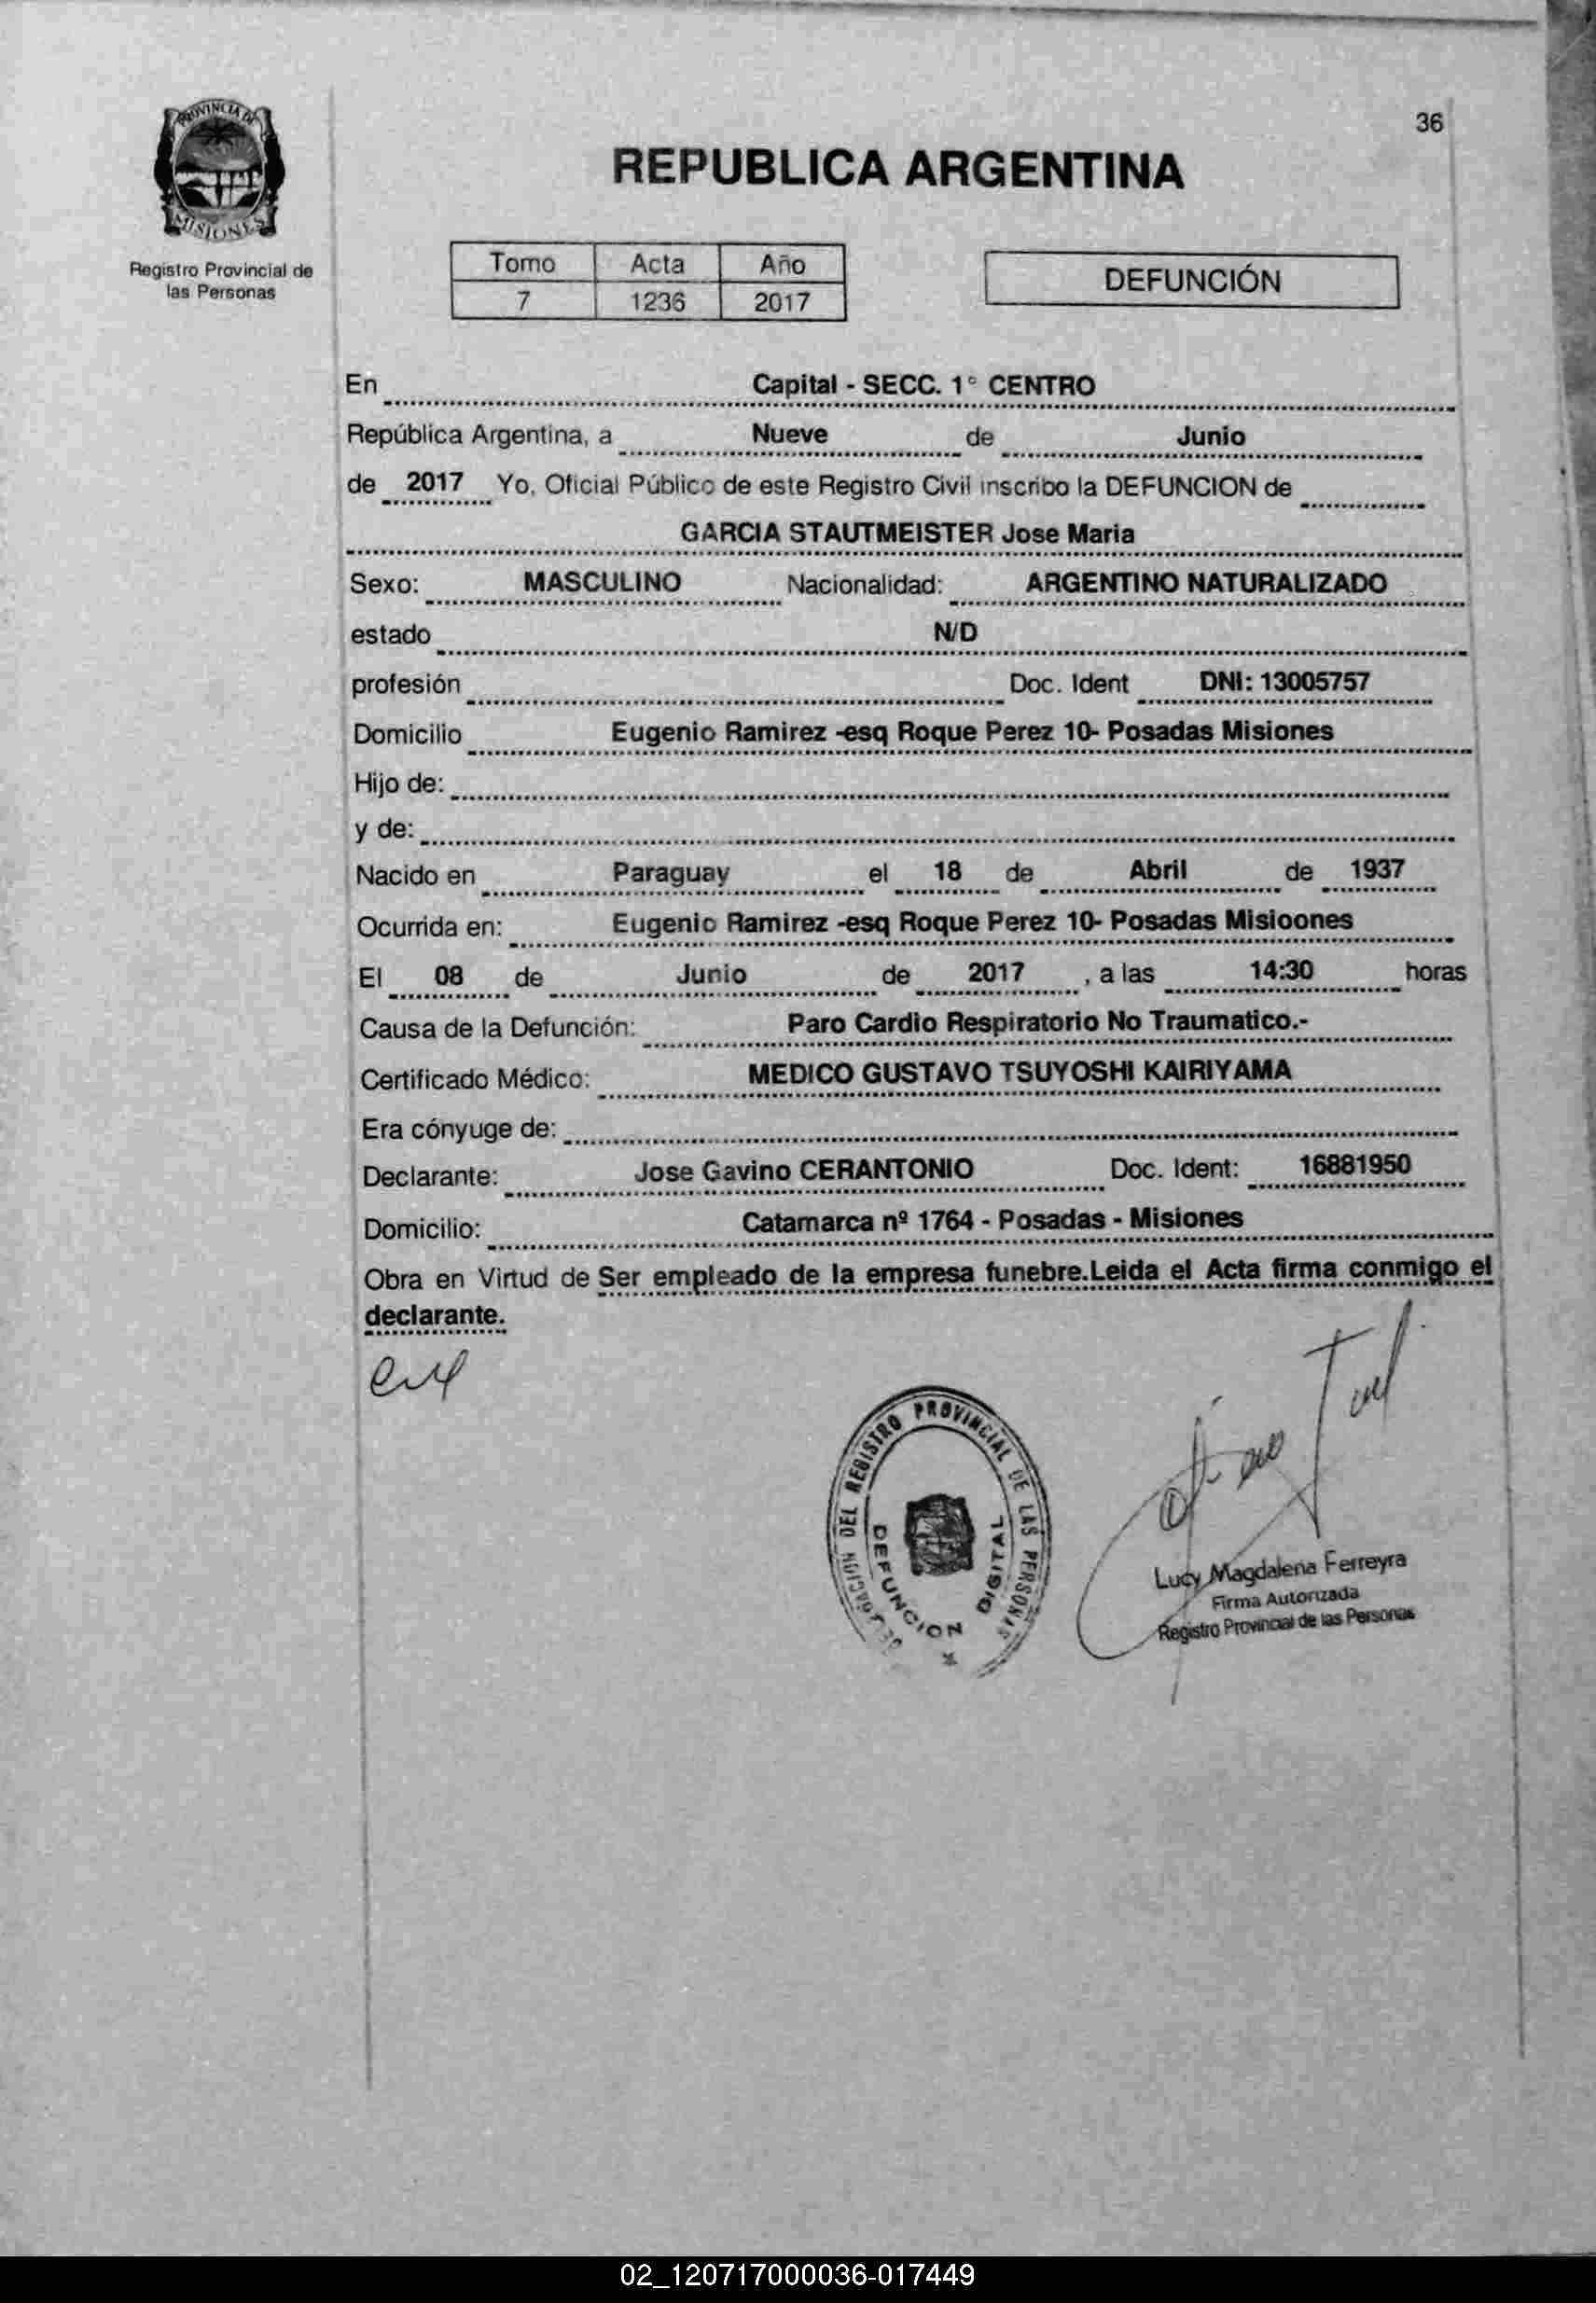 36
PROVINCIA DE
MISIONES
Registro Provincial de
las Personas
REPUBLICA ARGENTINA
Tomo Acta Año
7 1236 2017
DEFUNCIÓN
En Capital - SECC. 1° CENTRO
República Argentina, a Nueve de Junio
de 2017 Yo, Oficial Público de este Registro Civil inscribo la DEFUNCION de
GARCIA STAUTMEISTER Jose Maria
Sexo: MASCULINO Nacionalidad: ARGENTINO NATURALIZADO
estado N/D
profesión Doc. Ident DNI: 13005757
Domicilio Eugenio Ramirez -esq Roque Perez 10- Posadas Misiones
Hijo de:
y de:
Nacido en Paraguay el 18 de Abril de 1937
Ocurrida en: Eugenio Ramirez -esq Roque Perez 10- Posadas Misioones
El 08 de Junio de 2017 , a las 14:30 horas
Causa de la Defunción: Paro Cardio Respiratorio No Traumatico.-
Certificado Médico: MEDICO GUSTAVO TSUYOSHI KAIRIYAMA
Era cónyuge de:
Declarante: Jose Gavino CERANTONIO Doc. Ident: 16881950
Domicilio: Catamarca nº 1764 - Posadas - Misiones
Obra en Virtud de Ser empleado de la empresa funebre.Leida el Acta firma conmigo el
declarante.
DELEGACION DEL REGISTRO PROVINCIAL DE LAS PERSONAS
DEFUNCION DIGITAL
Lucy Magdalena Ferreyra
Firma Autorizada
Registro Provincial de las Personas
02_120717000036-017449